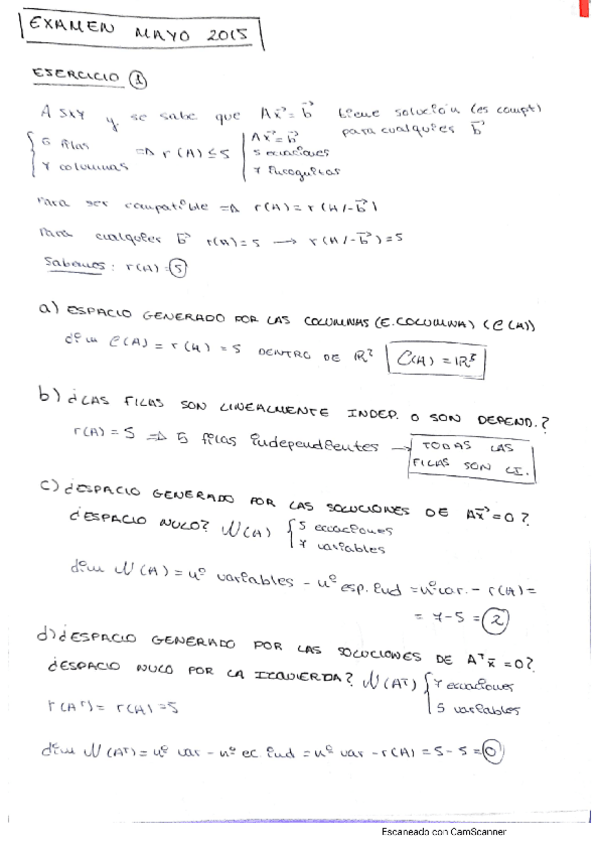 EXAMEN MAYO 2015
ESERCICIO ①
A 5x7 y se sabe que Ax⃗=b⃗ tiene solución (es compt)
para cualquier b⃗
5 filas
7 columnas
=> r(A)≤5
Ax⃗=b⃗
5 ecuaciones
7 incognitas
Para ser compatible => r(A)=r(A/-b⃗)
Para cualquier b⃗ r(A)=5 → r(A/-b⃗)=5
Sabemos: r(A)=⑤
a) ESPACIO GENERADO POR LAS COLUMNAS (E.COLUMNA) (C(A))
dim C(A) = r(A) = 5 DENTRO DE R? C(A) = R⁵
b) ¿LAS FILAS SON LINEALMENTE INDEP. O SON DEPEND.?
r(A)=5 => 5 filas independientes → TODAS LAS
FILAS SON L.I.
c) ¿ESPACIO GENERADO POR LAS SOLUCIONES DE Ax⃗=0?
¿ESPACIO NULO? N(A) { 5 ecuaciones
7 variables
dim N(A) = nº variables - nº esp. ind = nº var. - r(A) =
= 7-5 = ②
d) ¿ESPACIO GENERADO POR LAS SOLUCIONES DE Aᵀx̄=0?
¿ESPACIO NULO POR LA IZQUIERDA? N(Aᵀ) { 7 ecuaciones
5 variables
r(Aᵀ) = r(A) = 5
dim N(Aᵀ) = nº var - nº ec. ind = nº var - r(A) = 5-5 = ⓪
Escaneado con CamScanner